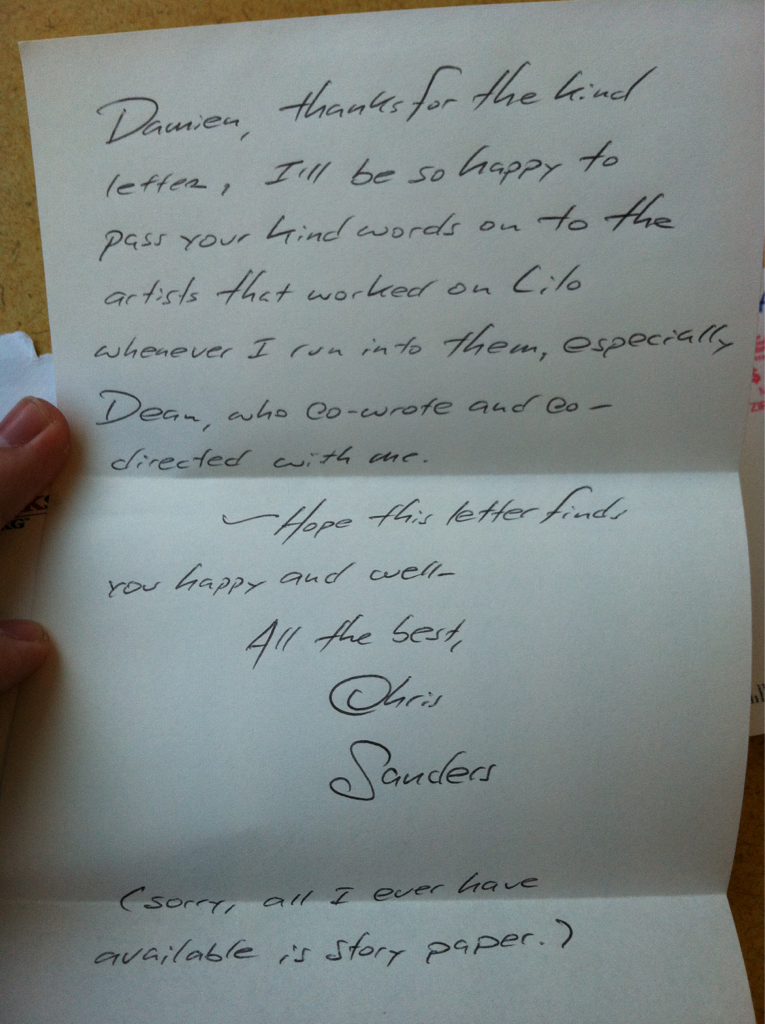 Damien, thanks for the kind
letter, I'll be so happy to
pass your kind words on to the
artists that worked on Lilo
whenever I run into them, especially
Dean, who co-wrote and co-
directed with me.
- Hope this letter finds
you happy and well-
All the best,
Chris
Sanders
(sorry, all I ever have
available is story paper.)